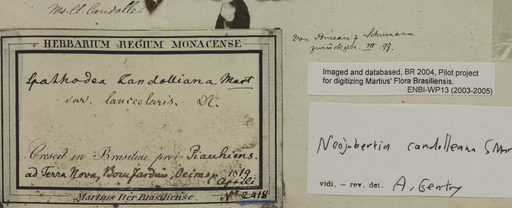 Ms. cl. Candolle
HERBARIUM REGIUM MONACENSE
Spathodea Candolliana Mart
var. lanceolaris. DC.
Crescit in Brasiliae prov. Piauhiens.
ad Terra Nova, Bom Jardim, Oeiras, 1819
Aprili
Martius Iter Brasiliense. No 2418
Von Bureau & Schumann
zurück. III. 97.
Imaged and databased, BR 2004, Pilot project
for digitizing Martius' Flora Brasiliensis.
ENBI-WP13 (2003-2005)
Neojobertia candolleana
vidi, – rev. det. A. Gentry